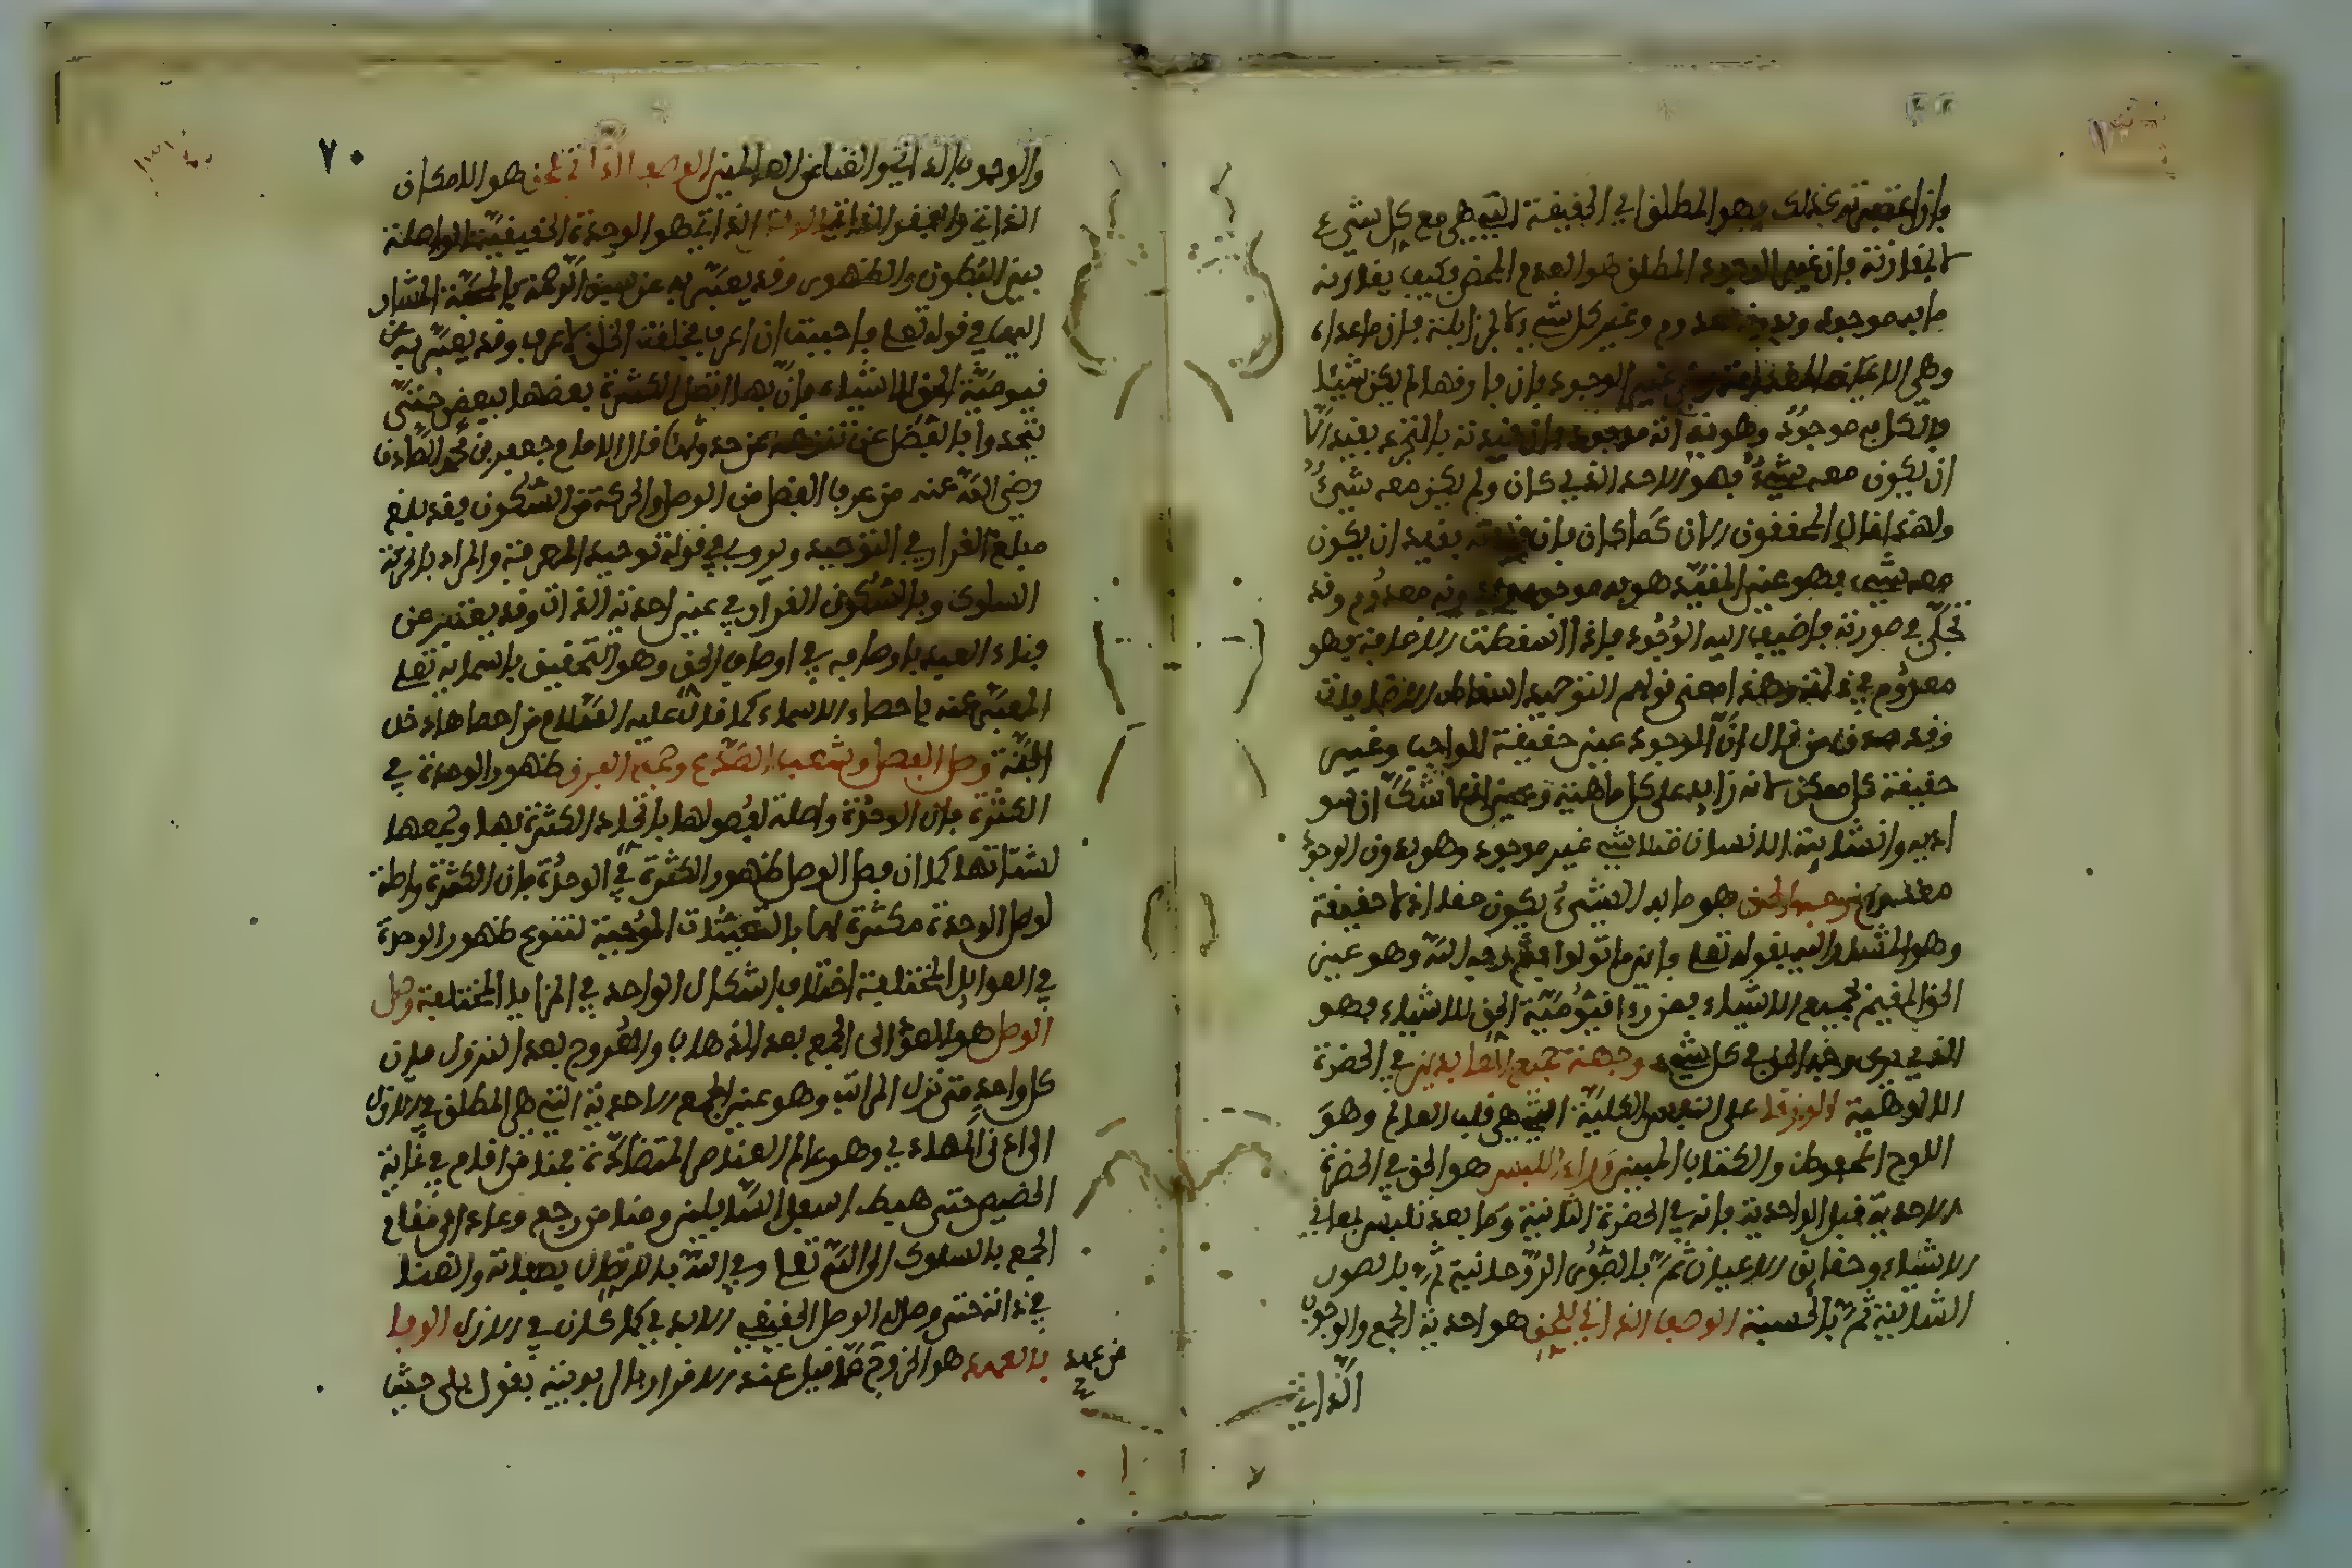 فإن اعتبرته كذلك فهو المطلق أي الحقيقة التي هي مع كل شيء
لا بمقارنة فإن غير الوجود المطلق هو العدم المحض فكيف يقارنه
ما به موجود وبدونه معدوم وغير كل شيء لا بمزايلة فإن ما عداه
وهي الاعيان المعدومة غير الوجود فإن فارقها لم يكن شيئا
فالكل به موجود وهو بذاته موجود فإن قيدته بالتجرد بقيد الا
ان يكون معه شيء فهو الاحد الذي كان ولم يكن معه شيء
ولهذا قال المحققون الان كما كان فإن قيدته بقيد ان يكون
معه شيء فهو عين المقيد هو به موجود وبدونه معدوم وقد
تجلى في صورته فاضيف اليه الوجود فإذا اسقطت الاضافة فهو
معدوم في ذاته وهذا معنى قولهم التوحيد اسقاط الاضافات
وقد صدق من قال ان الوجود عين حقيقة الواجب وغير
حقيقة كل ممكن لانه زايد على كل ماهية وعين
مثلا شيء غير موجود وهو بدون الوجود
معدوم وجه الحق هو ما به الشيء يكون حقا اذ لا حقيقة
وهو المشار اليه بقوله تعلى فاينما تولوا فثم وجه الله وهو عين
الحق المقيم لجميع الاشياء فمن رءا قيومية الحق للاشياء فهو
الذي يرى وجه الحق في كل شيء وجهة جميع العابدين في الحضرة
الالوهية الورقا على النفس الكلية التي هي قلب العالم وهو
اللوح المحفوظ والكتاب المبين وراء اللبس هو الحق في الحضرة
الاحدية قبل الواحدية فإنه في الحضرة الثانية وما بعد تلبس بمعاني
الاشياء وحقائق الاعيان ثم بالصور الروحانية ثم بالصور
المثالية ثم بالحسية الوصف الذاتي للحق هو احدية الجمع والوجوب
الذاتي
٧٠
والوجوب الذاتي والغنا عن العالمين الوصف الذاتي للخلق هو الامكان
الذاتي والفقر الذاتي الذاتي هو الوحدة الحقيقية الواصلة
بين البطون والظهور وقد يعبر به عن سبق الرحمة بالمحبة المشار
اليها في قوله تعلى فاحببت ان اعرف فخلقت الخلق لاعرف وقد يعبر به عن
قيومية الحق للاشياء فإن بها اتصل الكثرة بعضها ببعض حتى
يتحد وبالفصل عن تنزهه عن حدوثها قال الامام جعفر بن محمد الصادق
رضي الله عنه من عرف الفصل من الوصل والحركة من السكون فقد بلغ
مبلغ القرار في التوحيد ويروى في قوله توحيد المعرفة والمراد بالحركة
السلوك وبالسكون القرار في عين احدية الذات وقد يعبر عن
فناء العبد باوصافه في اوصاف الحق وهو التحقيق باسمائه تعلى
المعبر عنه باحصاء الاسماء كما قال عليه السلام من احصاها دخل
الجنة وصل الفصل وشعب الصدع وجمع الفرق ظهور الوحدة في
الكثرة فإن الوحدة واصلة لفصولها باتحاد الكثرة بها وجمعها
لشتاتها كما ان فصل الوصل ظهور الكثرة في الوحدة فإن الكثرة فاصلة
لوصل الوحدة مكثرة لها بالتعينات الموجبة لتنوع ظهور الوحدة
في القوابل المختلفة اختلاف اشكال الواحد في المرايا المختلفة وصل
الوصل هو العود الى الجمع بعد الذهاب والعروج بعد النزول فإن
كل واحد متى نزل المراتب وهو عين الجمع الاحدية التي هي المطلق في الازل
الى ادنى المهاوي وهو عالم العناصر المتضادة فمنا من اقام في غاية
الحضيض حتى هبط اسفل السافلين ومنا من رجع وعاد الى مقام
الجمع بالسلوك الى الله تعلى وفي الله بالاتصال بصفاته والفنا
في ذاته حتى وصل الوصل الحقيقي الابدي كما كان في الازل الوفا
بالعهد هو الخروج عما قيل عند الاقرار بالربوبية بقول بلى حيث
من عهد